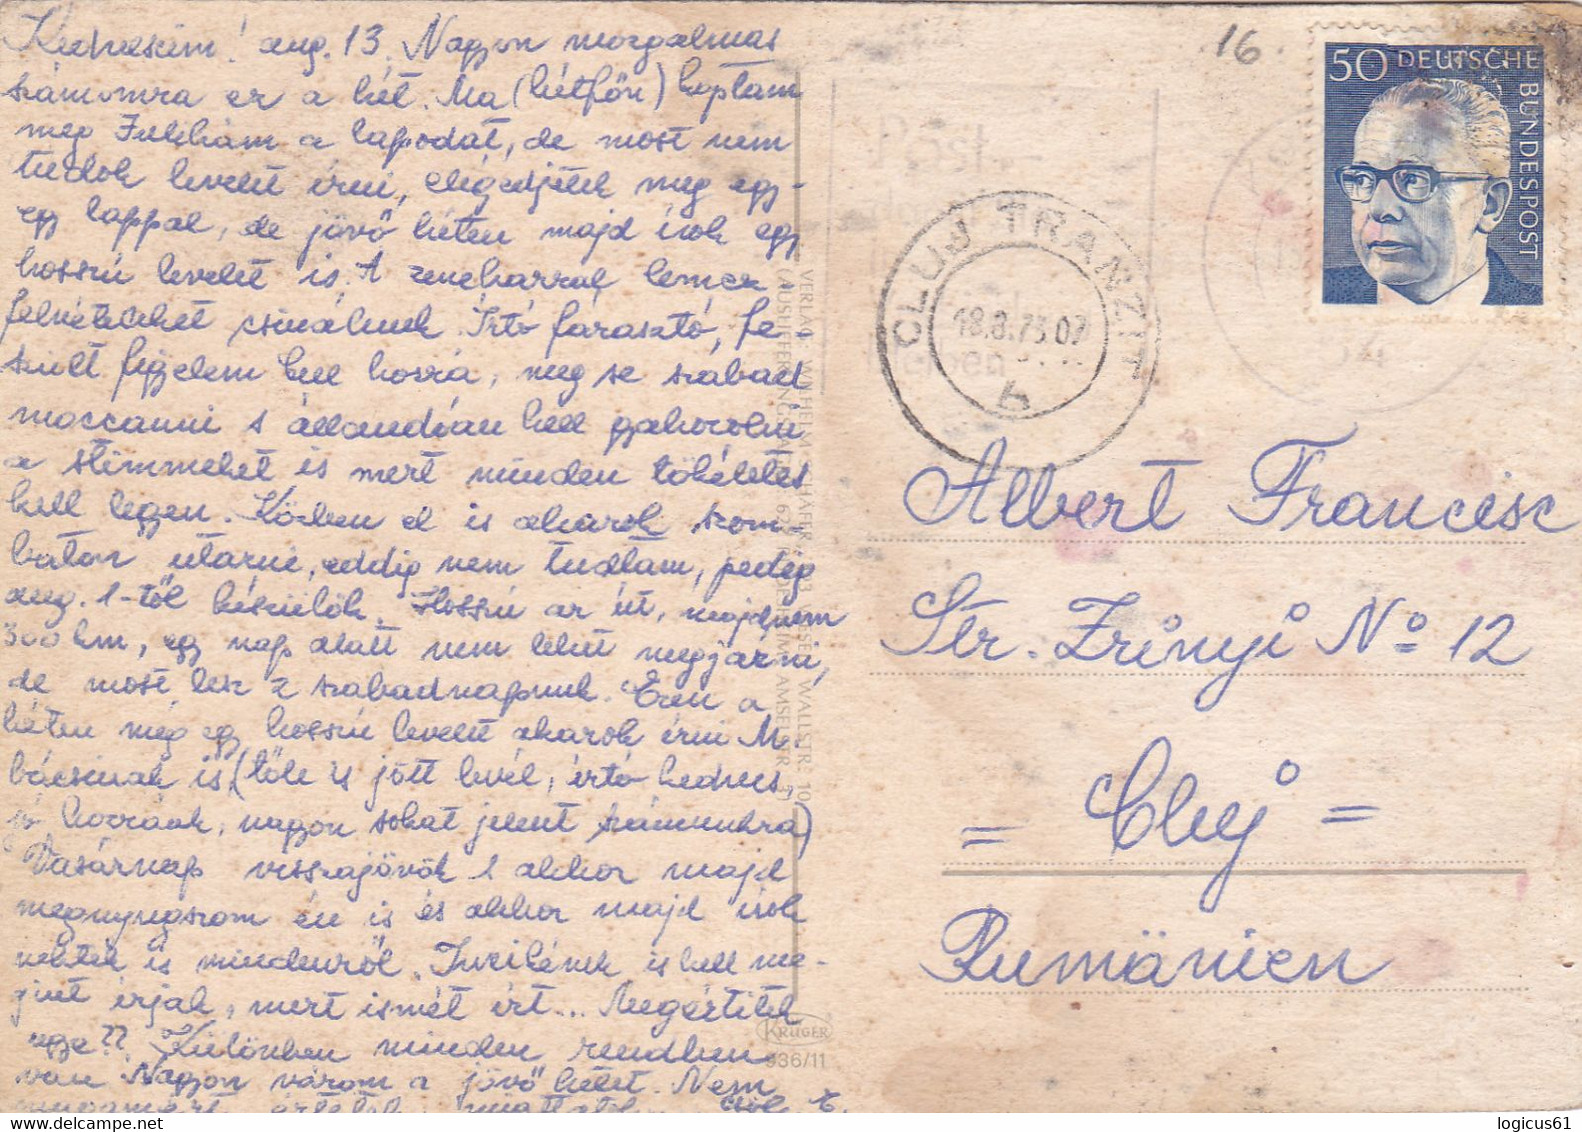 Kedveseim! aug. 13. Nagyon mozgalmas
számomra ez a hét. Ma (hétfőn) kaptam
meg Julikám a lapodat, de most nem
tudok levelet írni, elégedjetek meg egy-
egy lappal, de jövő héten majd írok egy
hosszú levelet is. A zenekarral lemez
felvételeket csinálunk. Irtó fárasztó, fe-
szült figyelem kell hozzá, meg se szabad
moccanni s állandóan kell gyakorolni
a stimmeket is mert minden tökéletes
kell legyen. Közben el is akarok szom
baton utazni, eddig nem tudtam, pedig
aug. 1-től készülök. Hosszú az út, majdnem
300 km, egy nap alatt nem lehet megjárni,
de most lesz 2 szabadnapunk. Ezen a
héten még egy hosszú levelet akarok írni M.
bácsinak is (tőle is jött levél, irtó kedves,
jó hozzánk, nagyon sokat jelent számunkra)
Vasárnap visszajövök s akkor majd
megnyugszom én is és akkor majd írok
nektek is mindenről. Juciкének is kell me-
gint írjak, mert ismét írt... Megértitek
ugye?? Különben minden rendben
van Nagyon várom a jövő hetet. Nem
értetek miattatok
VERLAG WILHELM SCHÄFER
(AUSLIEFERUNGSLAGER
WALLSTR. 10
AMSELSTR.
KRÜGER
936/11
16.
50 DEUTSCHE
BUNDESPOST
CLUJ TRANZIT
18.8.73.07
b
Albert Francisc
Str. Zrinyi No 12
= Cluj =
Rumänien
www.delcampe.net
logicus61